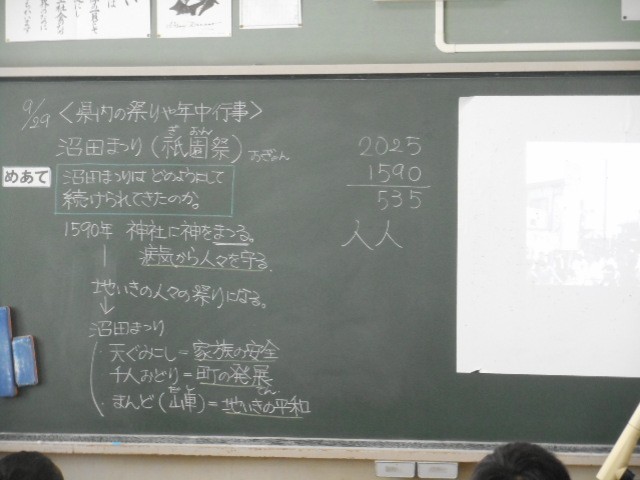 9/29 〈県内の祭りや年中行事〉
沼田まつり(祇園祭) おぎょん
ぎ おん
めあて
沼田まつりは どのようにして
続けられてきたのか。
1590年 神社に神をまつる。
病気から人々を守る.
地いきの人々の祭りになる。
↓
沼田まつり
・天ぐみこし=家族の安全
・千人おどり=町の発展
・まんど()=地いきの平和
2025
1590
535
人人